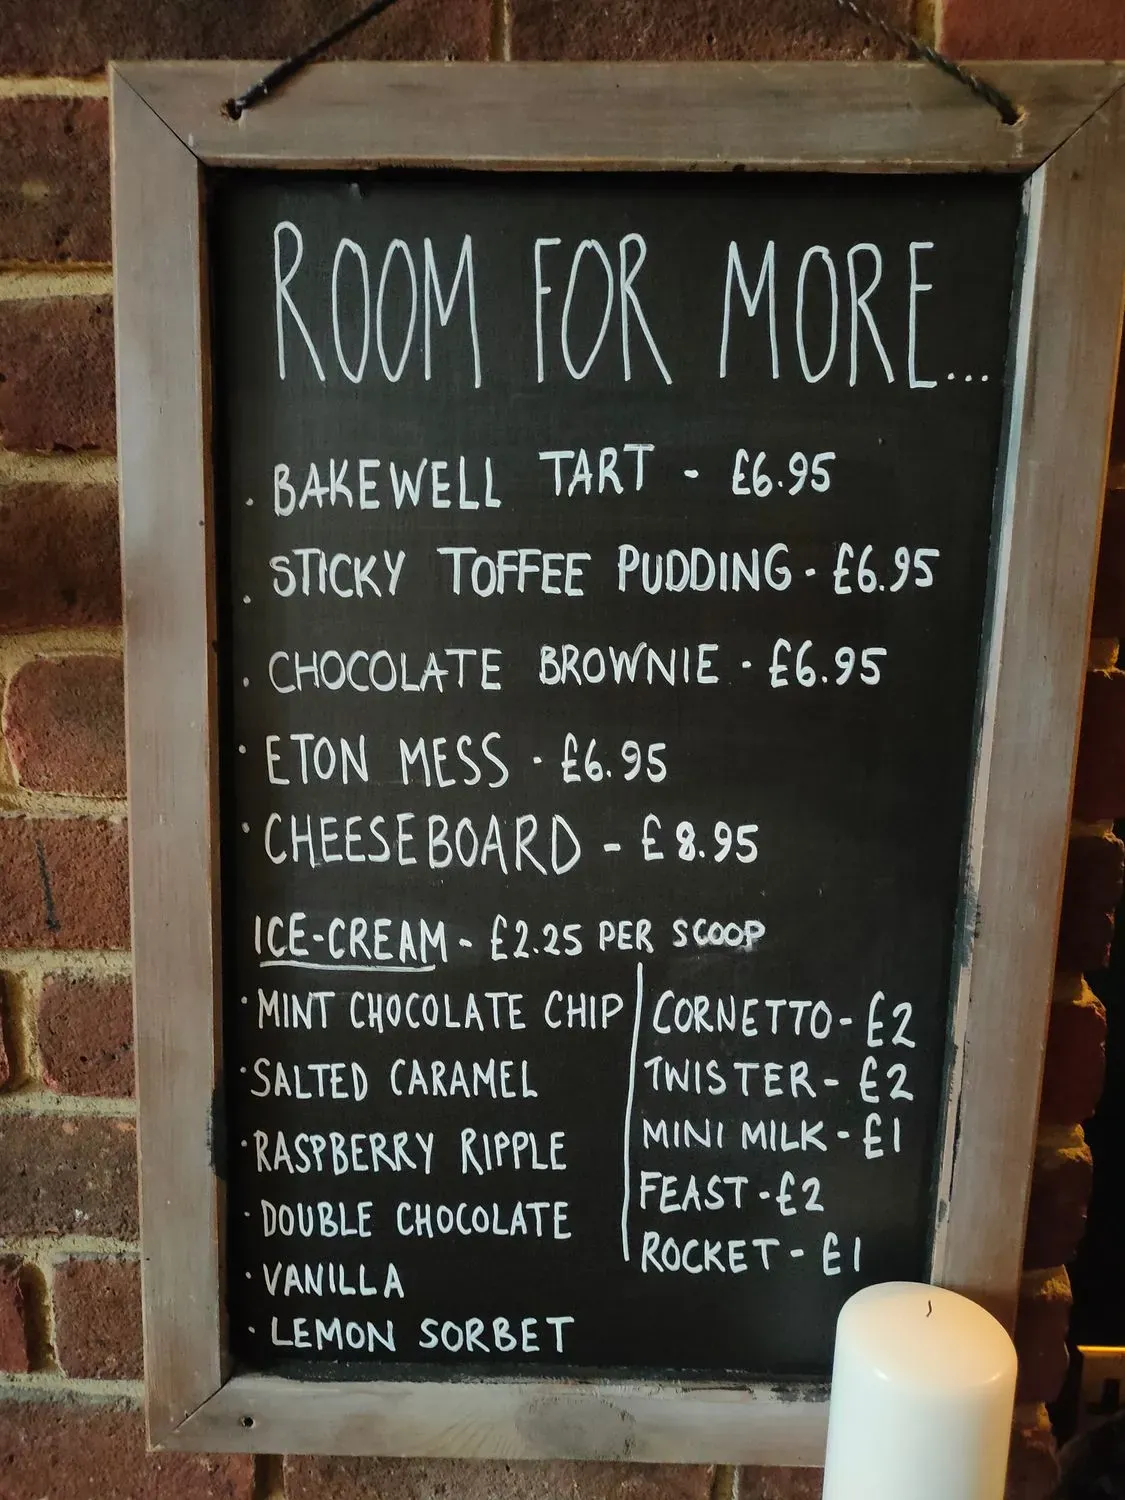 ROOM FOR MORE...
. BAKEWELL TART - £6.95
. STICKY TOFFEE PUDDING - £6.95
. CHOCOLATE BROWNIE - £6.95
· ETON MESS - £6.95
· CHEESEBOARD - £8.95
ICE-CREAM - £2.25 PER SCOOP
· MINT CHOCOLATE CHIP
· SALTED CARAMEL
· RASPBERRY RIPPLE
· DOUBLE CHOCOLATE
· VANILLA
· LEMON SORBET
CORNETTO - £2
TWISTER - £2
MINI MILK - £1
FEAST - £2
ROCKET - £1